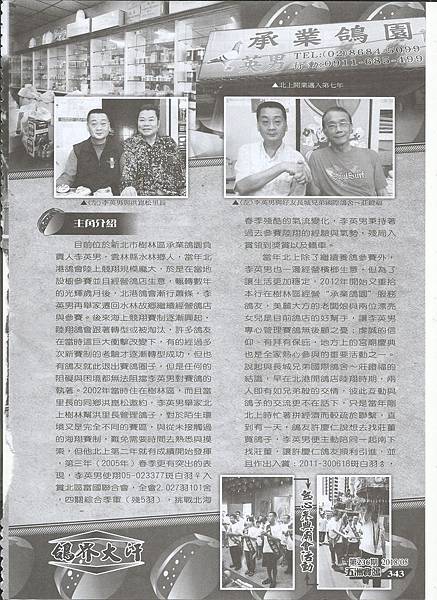 承業鴿園
李英男
TEL:(02)8684-5099
行動:0911-685-499
▲北上開業邁入第七年
▲(左)李英男與洪崑松里長
▲(左)李英男與好友長城兄弟國際鴿舍~莊鎧福
主角介紹
目前位於新北市樹林區承業鴿園負
責人李英男,雲林縣水林鄉人,當年北
港鴿會陸上競翔規模龐大,於是在當地
設櫥參賽並且經營鴿店生意,輾轉數年
的光輝歲月後,北港鴿會漸行蕭條,李
英男再舉家遷回水林故鄉繼續經營鴿店
與參賽。後來海上競翔賽制逐漸興起,
陸翔鴿會跟著轉型或被淘汰,許多鴿友
在當時遭巨大衝擊改變下,有的經過多
次新賽制的考驗才逐漸轉型成功,但也
有鴿友就此退出賽鴿圈子,但是任何的
阻礙與困境都無法阻擋李英男對賽鴿的
執著。2002年當時住在樹林區,而且當
里長的同鄉洪崑松邀約,李英男舉家北
上樹林幫洪里長管理鴿子,對於陌生環
境又是完全不同的賽區,與從未接觸過
的海翔賽制,難免需要時間去熟悉與摸
索,但他北上第二年就有成績開始發揮
,第三年(2005年)春季更有突出的表
現,李英男使翔05-023377斑白羽♀入
賞北區富國聯合會,全會2.02733101舍
,四關綜合季軍(殘5羽),挑戰北海
春季殘酷的氣流變化,李英男秉持著
過去參賽陸翔的經驗與氣勢,殘局入
賞領到獎賞以及轎車。
當年北上除了繼續養鴿參賽外,
李英男也一邊經營檳榔生意,但為了
讓生活更加穩定,2012年開始又重拾
本行在樹林區經營"承業鴿園"服務
鴿友,美麗大方的老闆娘與兩位漂亮
女兒是目前鴿店的幫手,讓李英男
專心管理賽鴿無後顧之憂;虔誠的信
仰~有拜有保庇,地方上的宮廟慶典
也是全家熱心參與的重要活動之一。
說起與長城兄弟國際鴿舍~莊鎧福的
結識,早在北港開鴿店陸翔時期,兩
人即有如兄弟般的交情,彼此互動與
鴿子的交流更不在話下。只是當年剛
北上時忙著拼經濟而較疏於聯繫,直
到有一天,鴿友許慶仁說想去找莊董
買鴿子,李英男便主動陪同一起南下
找莊董,讓許慶仁鴿友順利引進,並
且作出入賞:2011-300618斑白羽♀,
熱心參與廟會活動
鴿界大汗
第236期 2018/05
五洲賽鴿
343